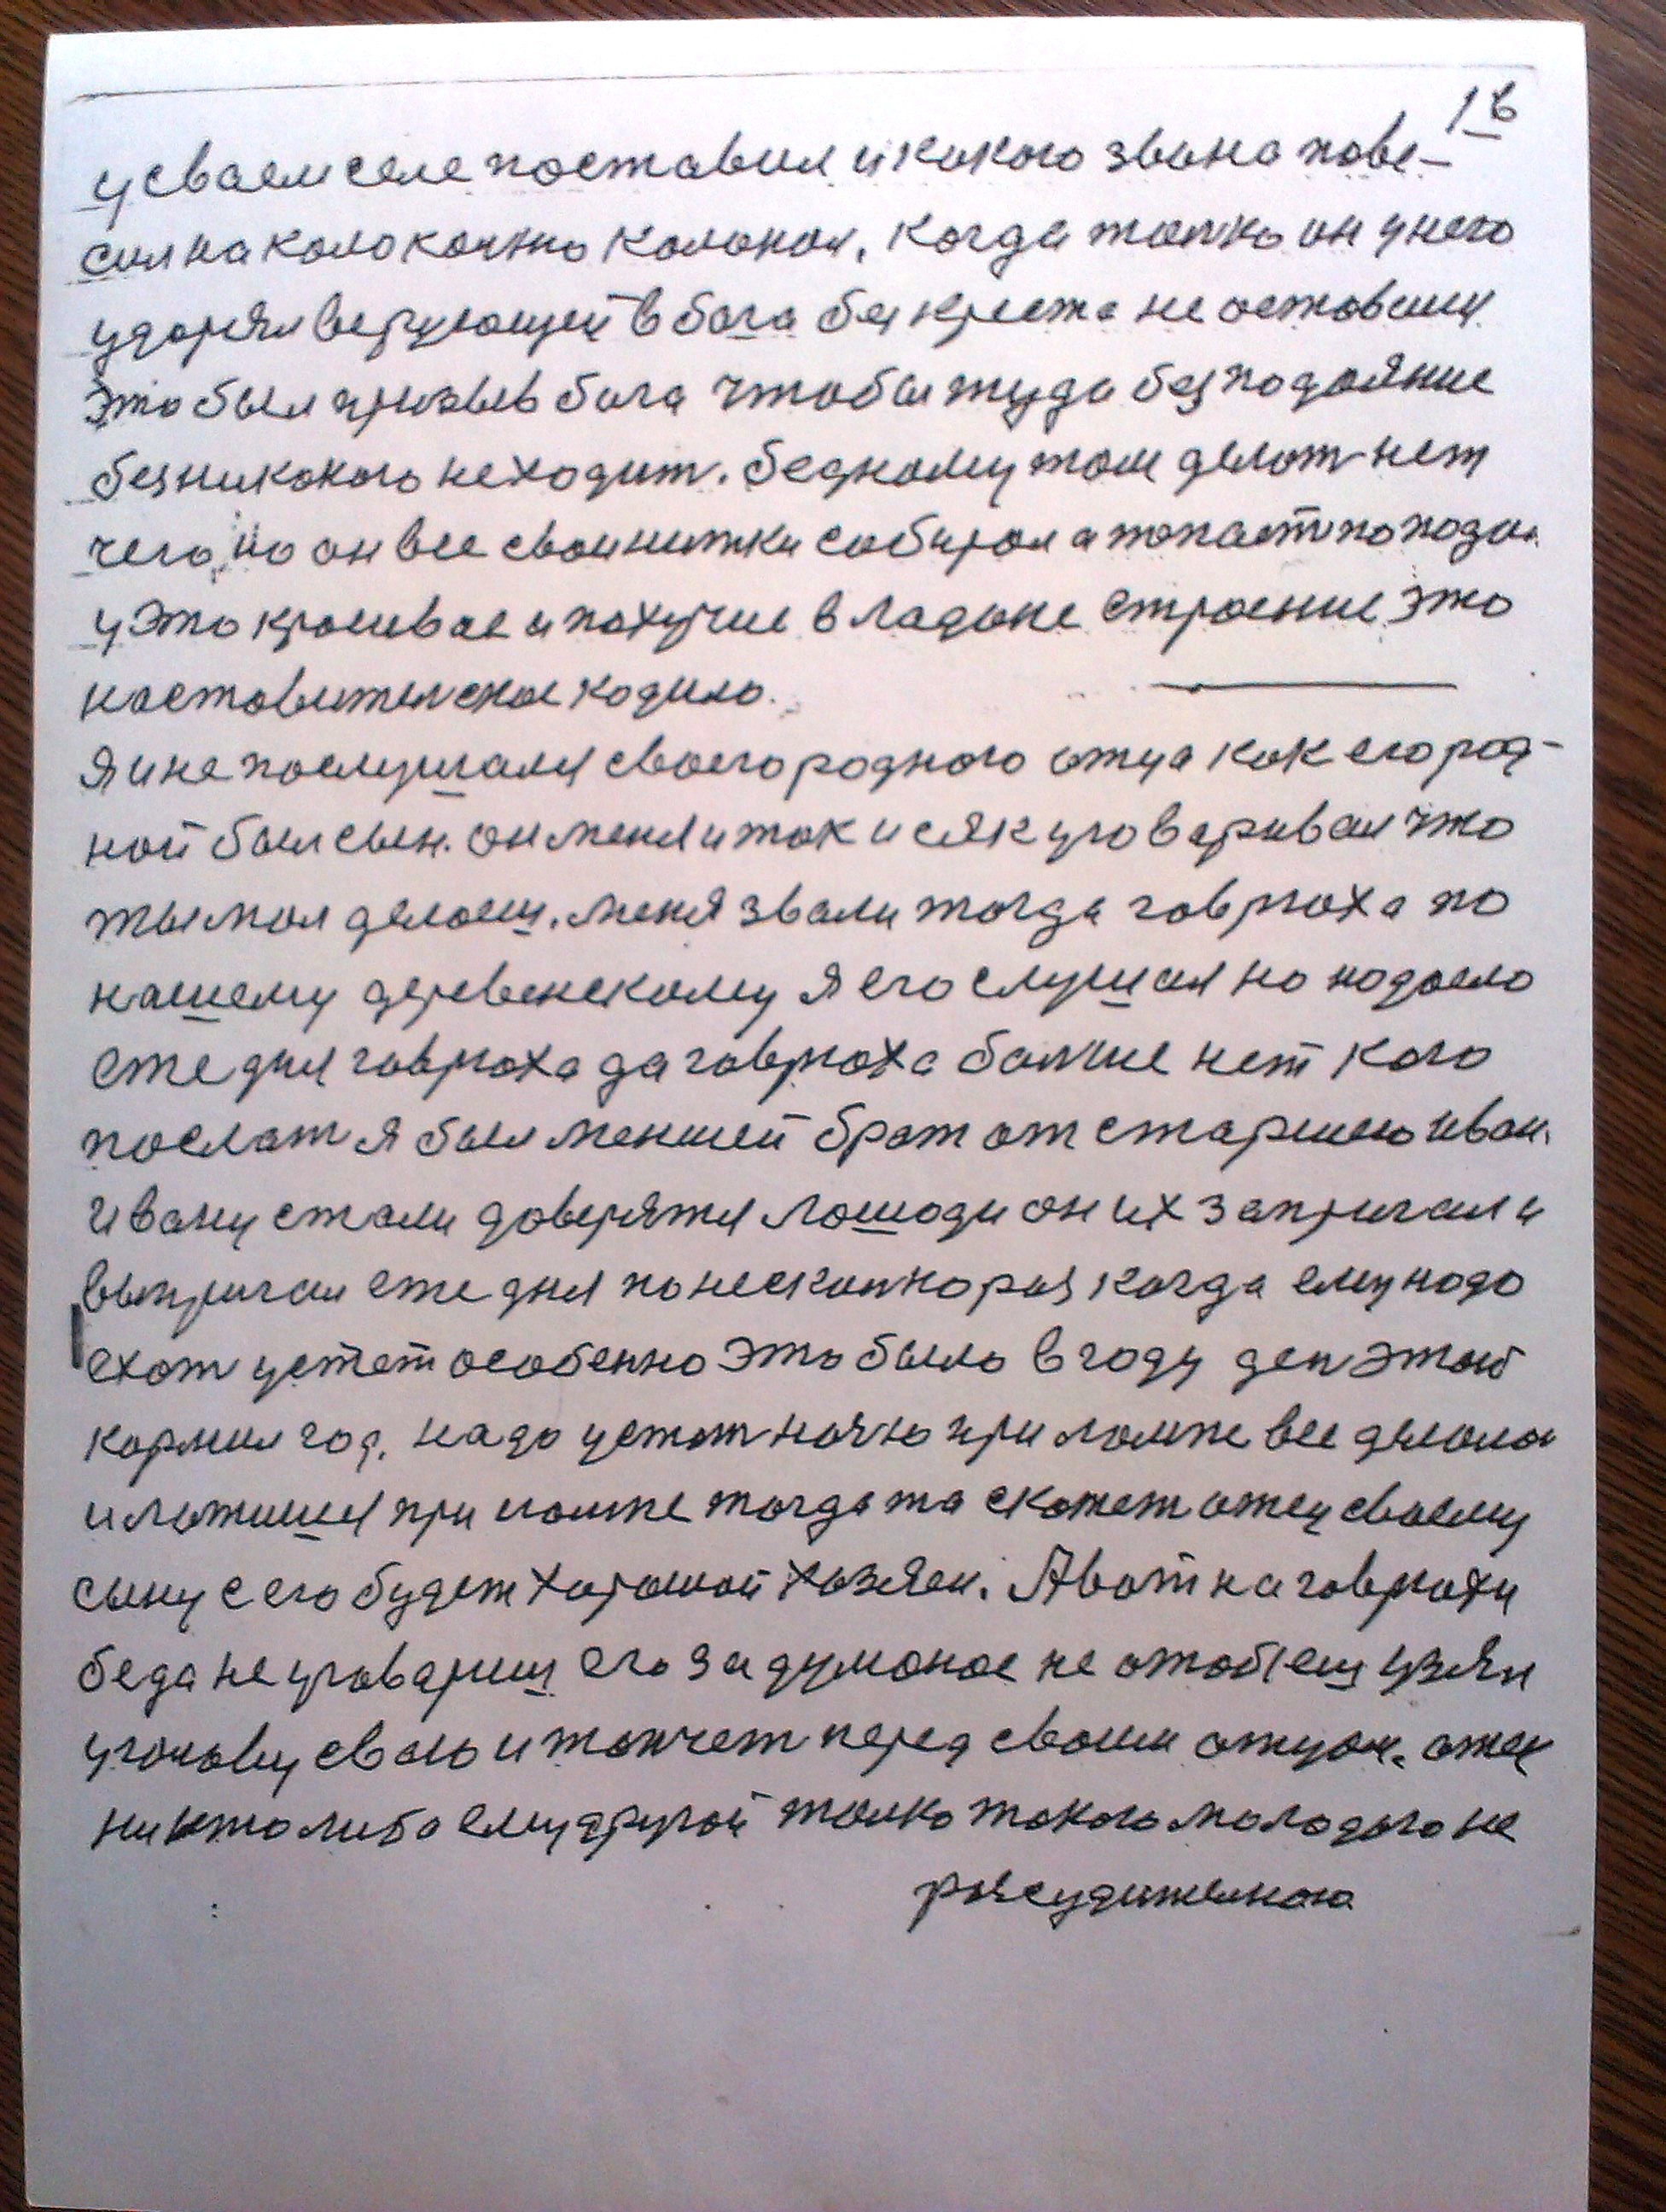 1в
усваем селе поставил и какого звона пове-
сил на колокочню колокол. Когда только он у него
ударял верующей в бога без креста не оставили
Это был призыв бога чтобы туда без подаяние
без никакого не ходит. бедному там делат нет
чего, но он все свои нитки собирал а топает по
у это красивае и пахучие в ладоне строение это
наставительское кадило.
Я и не послушался своего родного отца как его род-
ной был сын. он меня и так и сяк уговаривал что
ты мол делаеш. меня звали тогда гаврюха по
нашему деревенскому я его слушал но надоело
еже дня гаврюха да гаврюха балше нет кого
послат я был меншей брат от старшего иван.
ивану стали доверятя лошади он их запричал и
выпричал еже дня по несколко раз когда ему надо
ехат устет особенно это было в году ден этой
кормил год. надо устат ночю при лампе все делала
и ложишся при лампе тогда та скажет отец своему
сыну с его будет харошай хазяен. А вот на гаврюхи
беда не уговариш его задуманое не отобъеш узял
у голову сваю и топчет перед своим отцом. отец
ни кто либо ему другой толко такого молодого не
расудителного